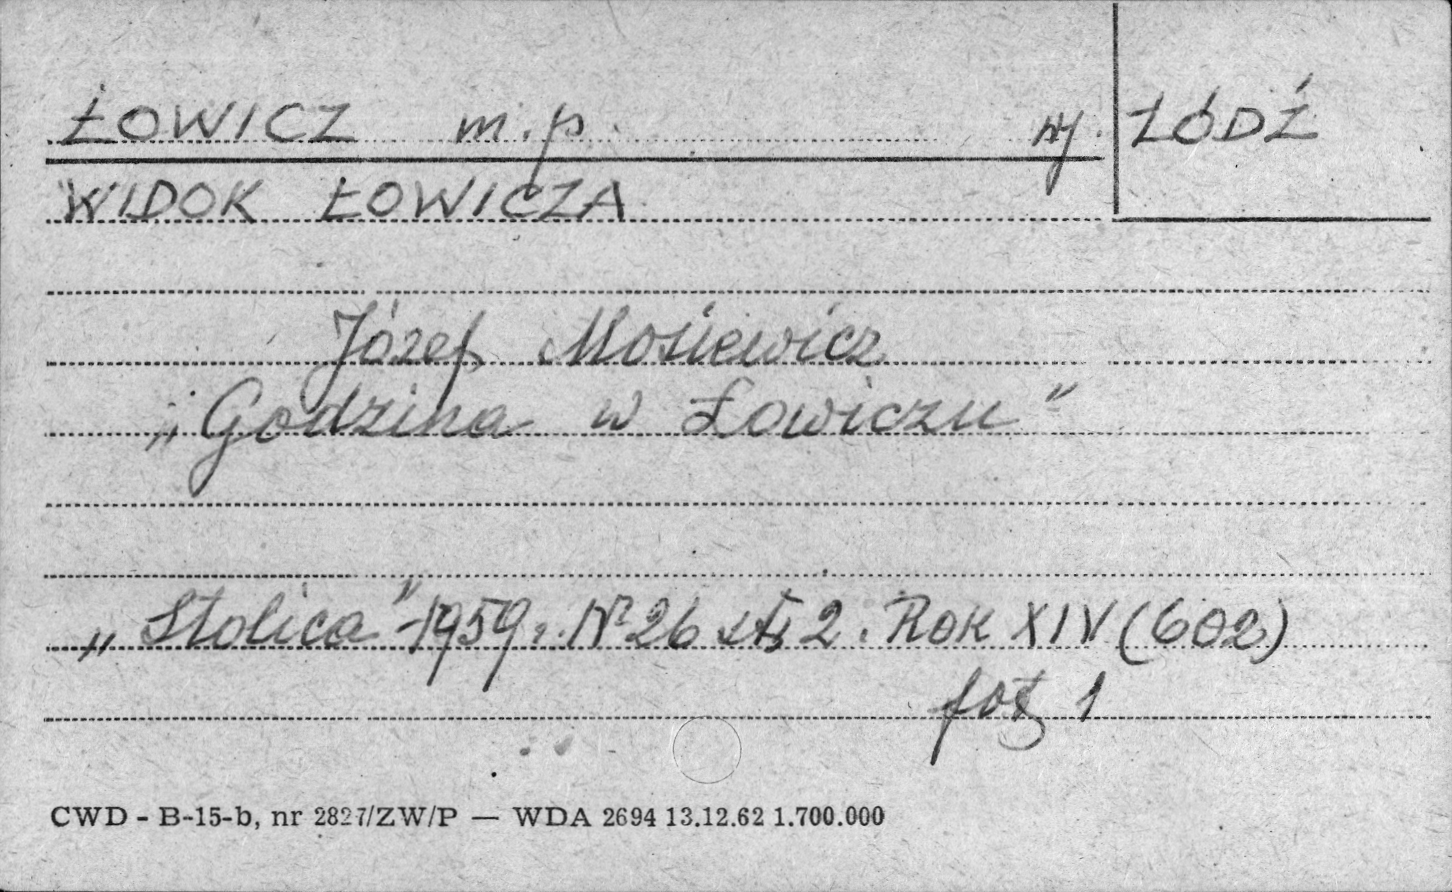 ŁOWICZ m.p. wj. ŁÓDŹ
WIDOK ŁOWICZA
Józef Mosiewicz
„Godzina w Łowiczu”
„Stolica” - 1959 r. Nr 26 str 2. Rok XIV (602)
fot 1
CWD - B-15-b, nr 2827/ZW/P — WDA 2694 13.12.62 1.700.000